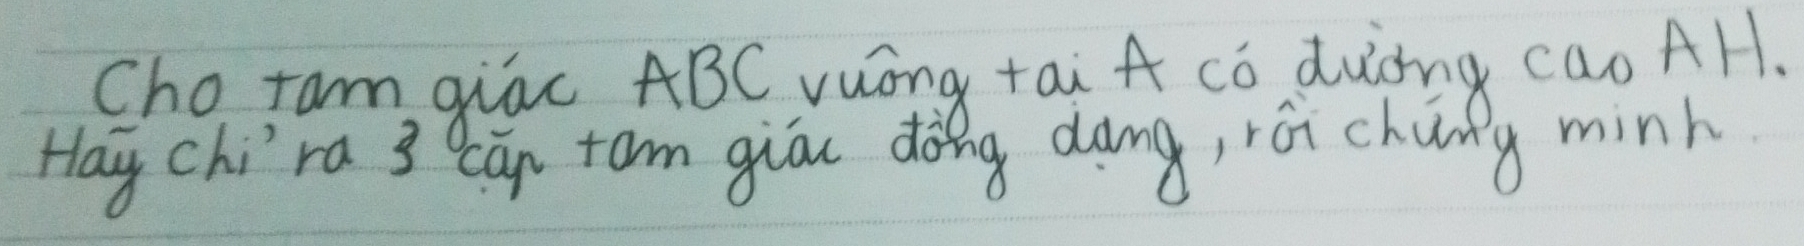 Cho tam giác ABC vuông tại A có đường cao AH.
Hãy chỉ ra 3 cặp tam giác đồng dạng, rồi chứng minh.